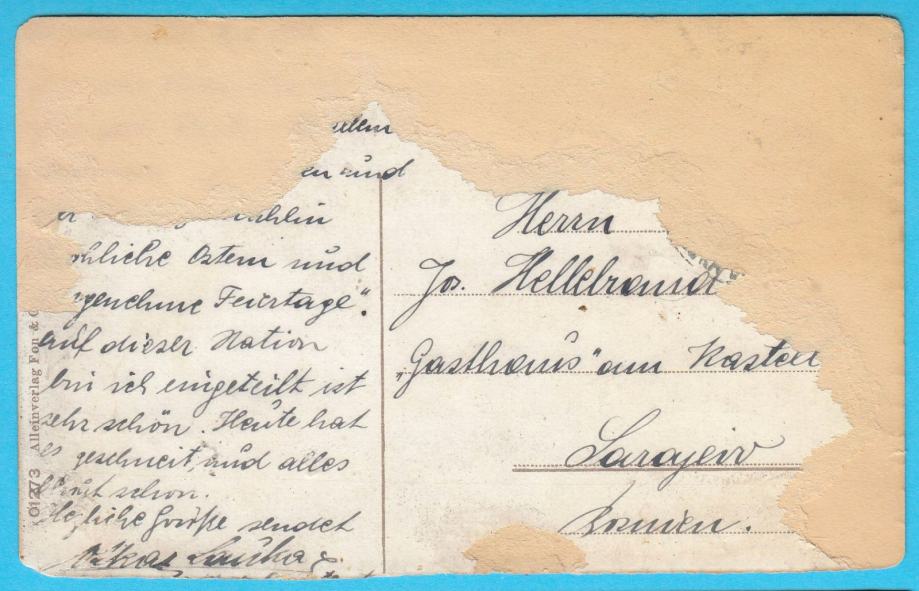 allem
en und
er ... ahlin
hliche Ostern und
genehme Feiertage".
auf dieser Station
bin ich eingeteilt ist
sehr schön. Heute hat
es geschneit und alles
blüht schon.
Herzliche Grüße sendet
Herrn
Jos. Hellebrand
"Gasthaus" am Kastell
Sarajevo
Bosnien.
01273 Alleinverlag Fon &